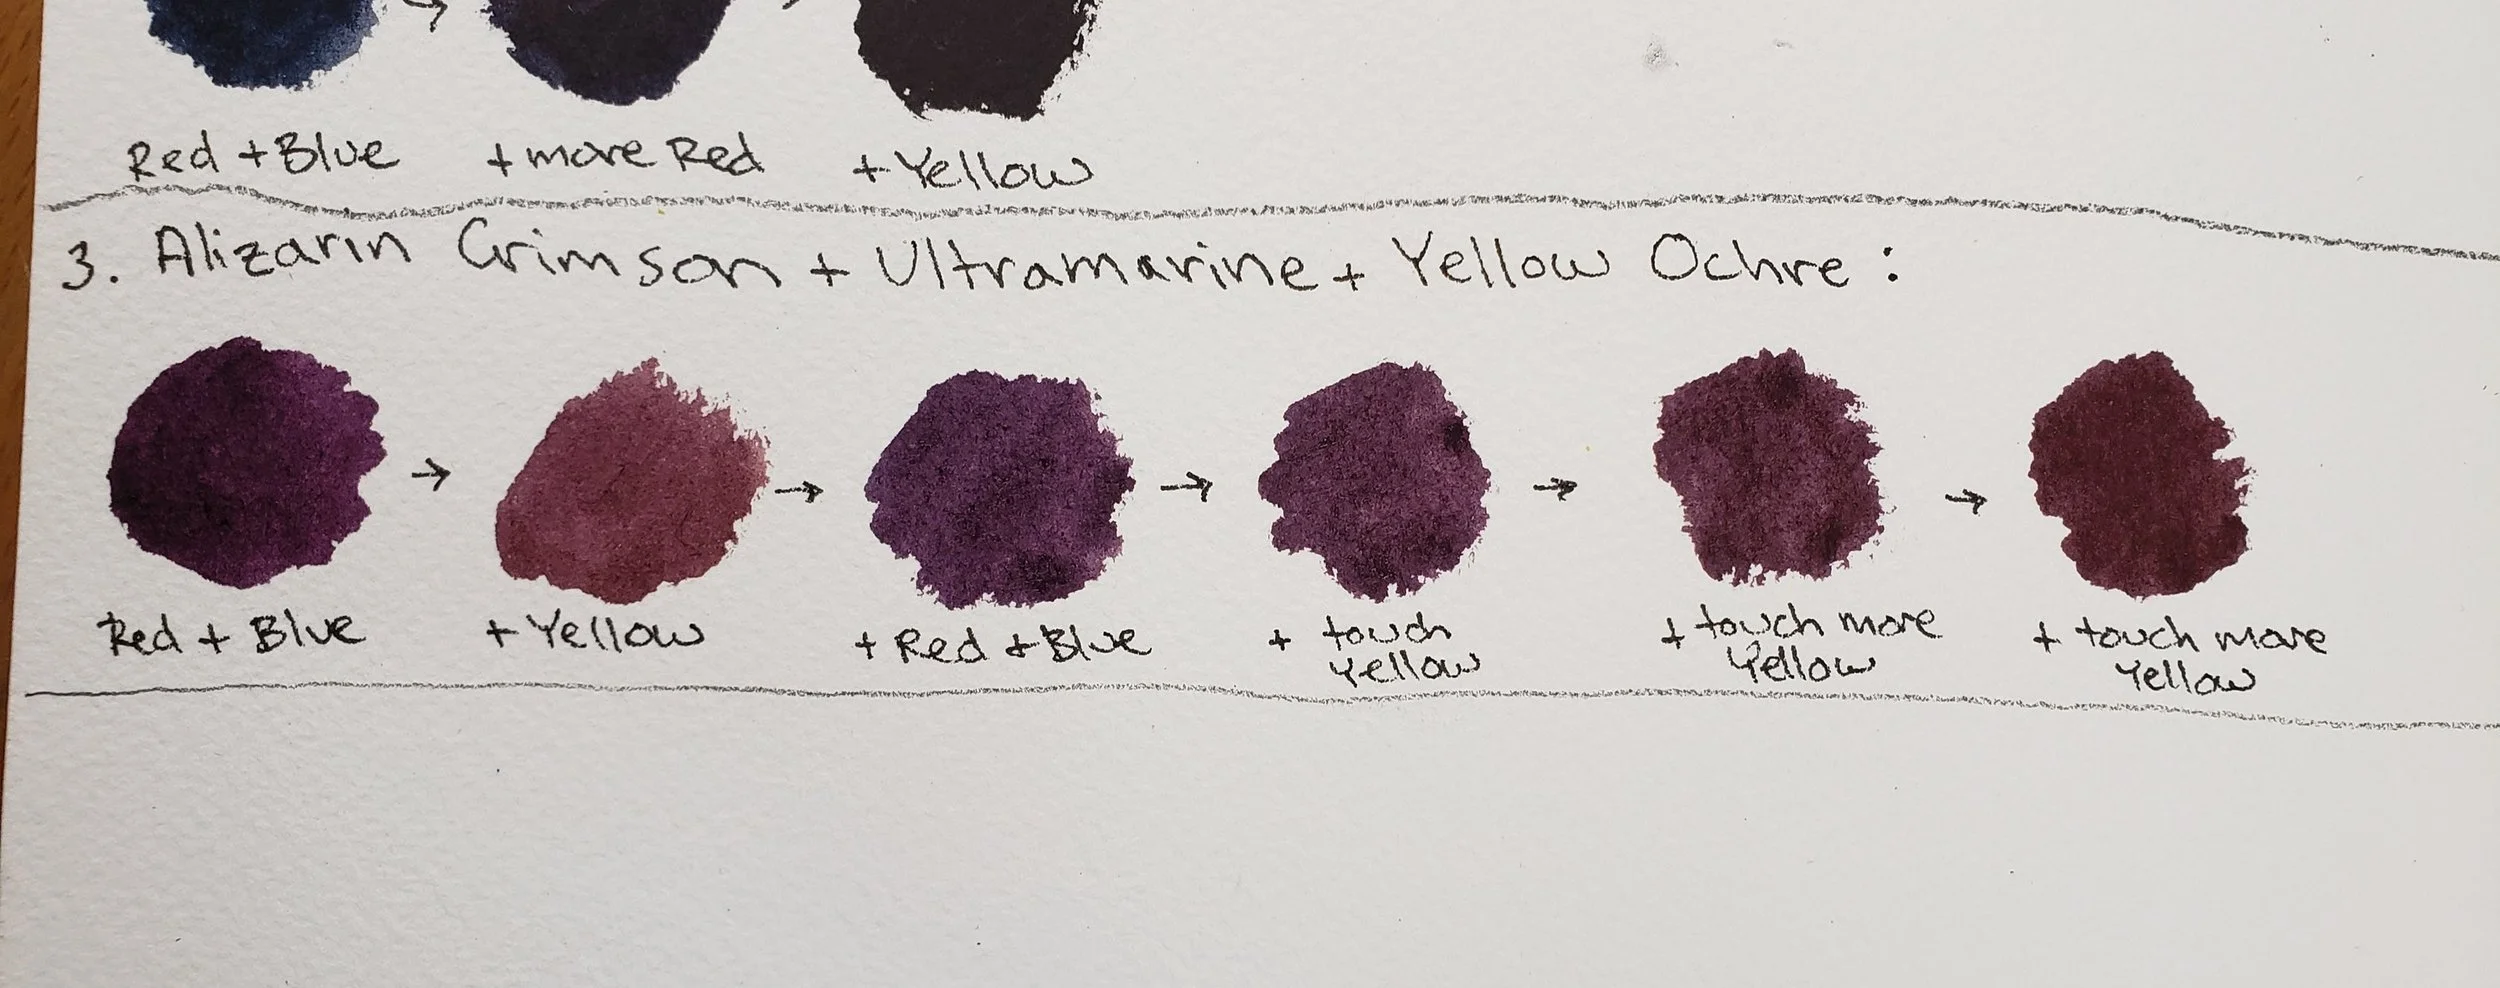 Red + Blue + more Red + Yellow
3. Alizarin Crimson + Ultramarine + Yellow Ochre :
Red + Blue + Yellow + Red + Blue + touch Yellow + touch more Yellow + touch more Yellow